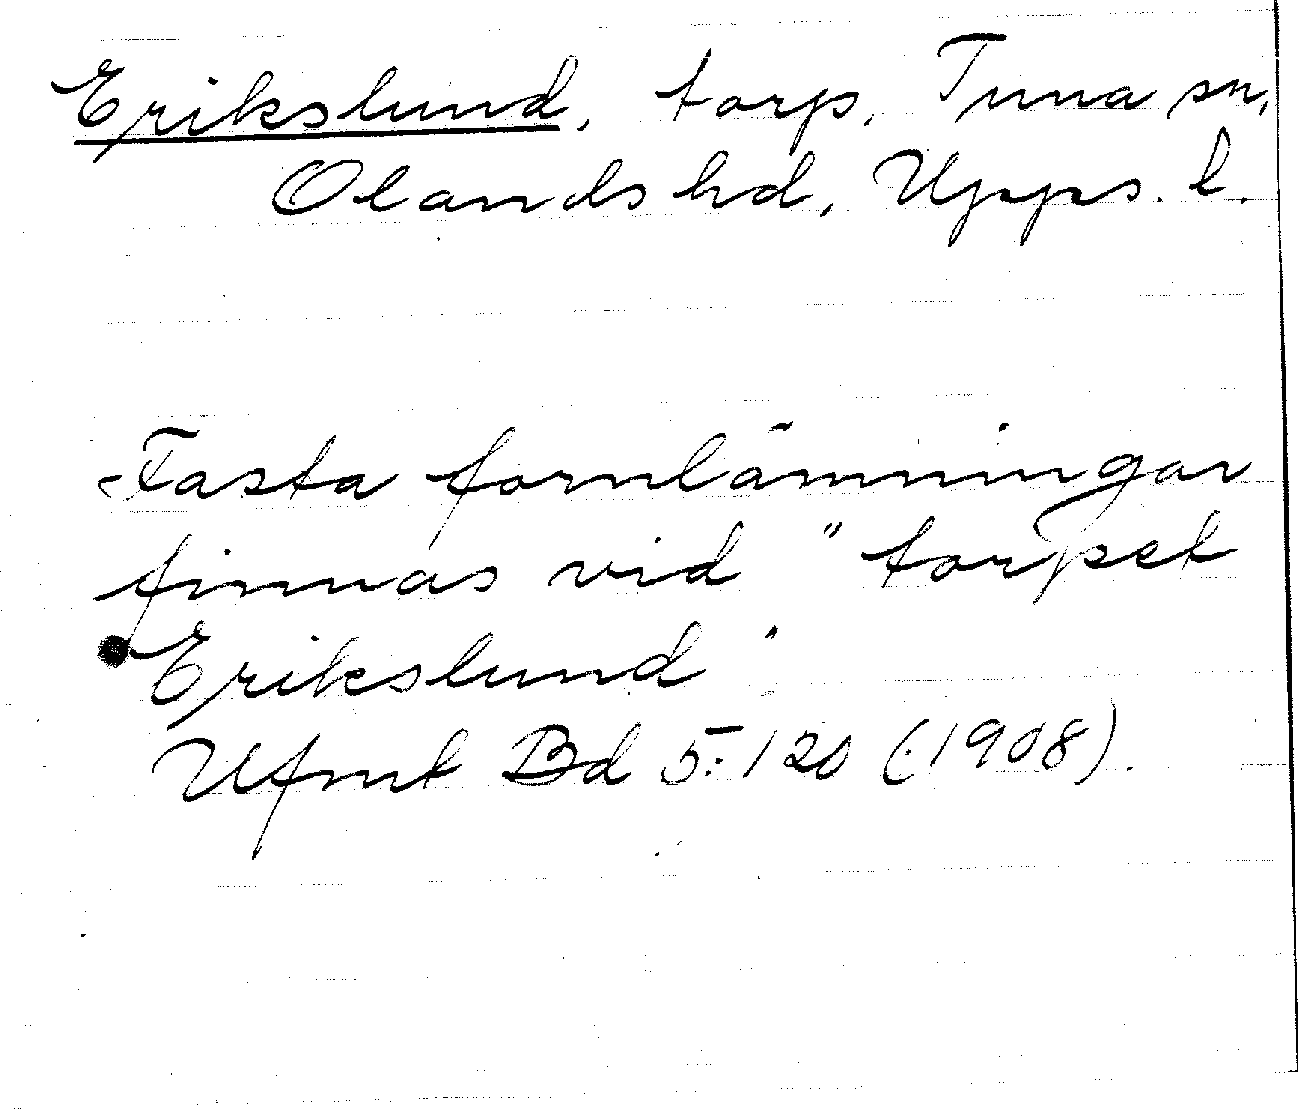 Erikslund, torp, Tuna sn,
Olands hd, Upps. l.
Fasta fornlämningar
finnas vid "torpet
Erikslund"
Ufmt Bd 5:120 (1908).